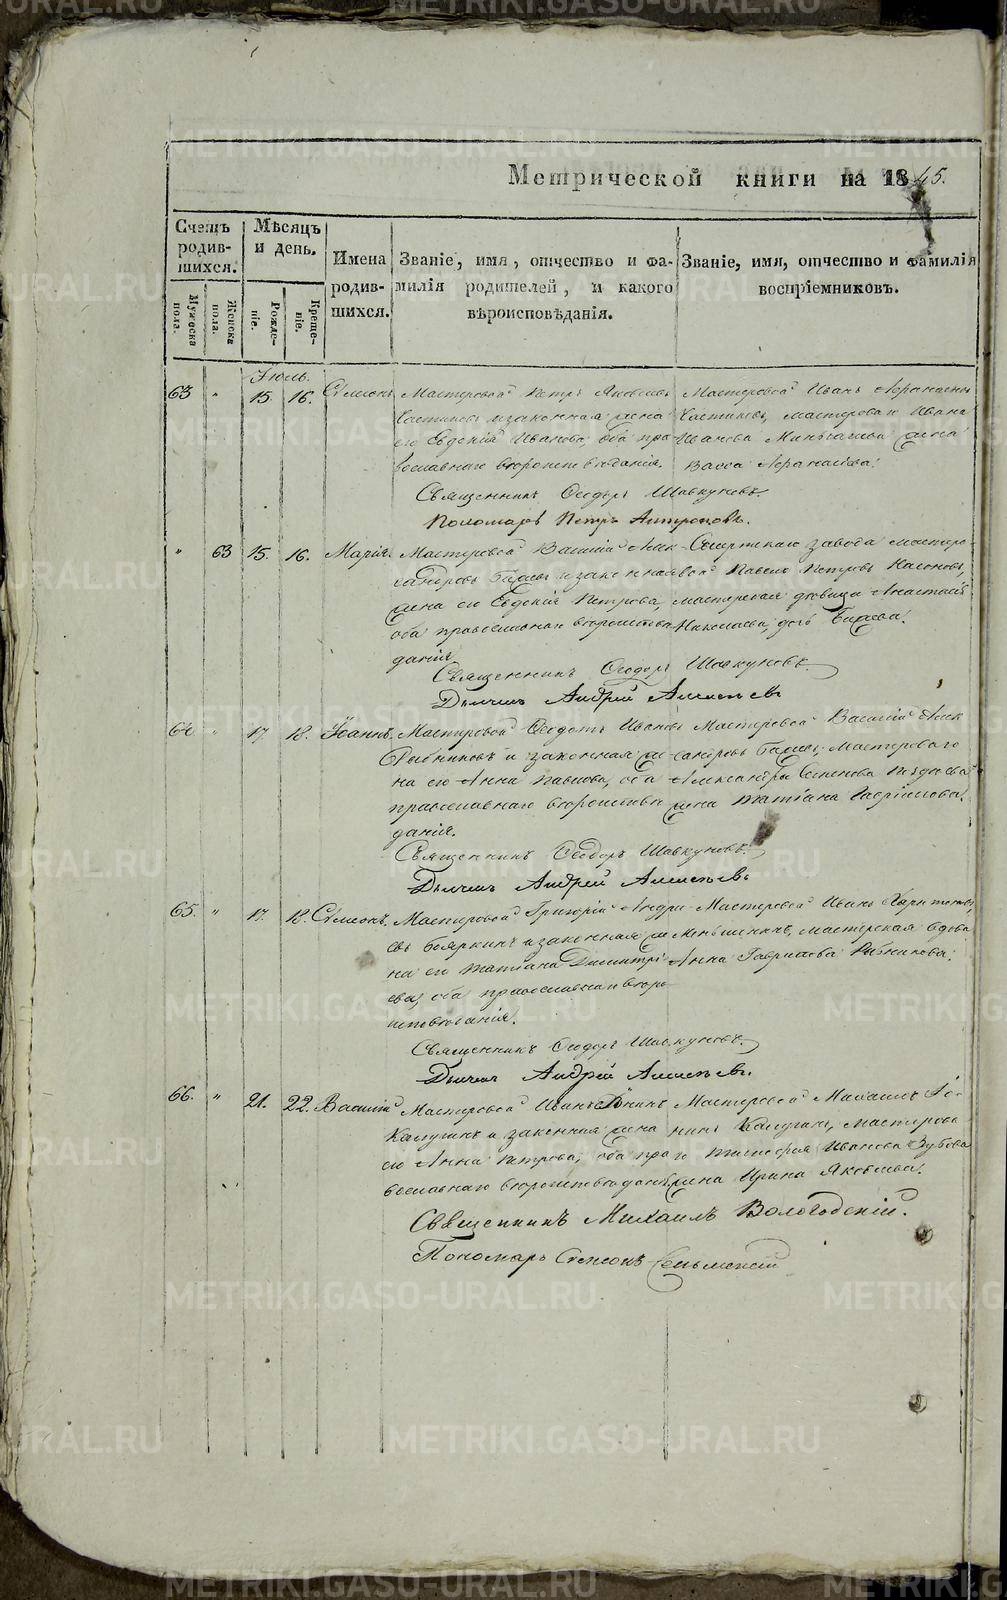 Метрической книги на 1845.
Счетъ родившихся.
Мѣсяцъ и день.
Имена родившихся.
Званіе, имя, отчество и фамилія родителей, и какого вѣроисповѣданія.
Званіе, имя, отчество и фамилія воспріемниковъ.
Мужеска пола.
Женска пола.
Рожденіе.
Крещеніе.
Іюль.
63 " 15. 16. Сѵмеонъ Мастеровой Петръ Яковлевъ
и законная жена
его Евдокія Иванова, оба пра-
вославнаго вѣроисповѣданія.
Мастеровой Иванъ Афанасьевъ
мастероваго Ивана
Иванова жена
Васса Афанасьева.
Священникъ Ѳеодоръ Шавкуновъ.
Пономарь Петръ
" 63 15. 16. Марія. Мастеровой Василій Алек-
сандровъ и законная
жена его Евдокія Петрова,
оба православнаго вѣроисповѣ-
данія.
завода мастеро-
вой Павелъ Петровъ
мастерская дѣвица Анастасія
Николаева, дочь
Священникъ Ѳеодоръ Шавкуновъ.
Дьячекъ Андрей Алексѣевъ
64 " 17. 18. Іоаннъ. Мастеровой Ѳеодотъ Ивановъ
Рыбниковъ и законная же-
на его Анна Павлова, оба
православнаго вѣроисповѣ-
данія.
Мастеровой Василій Алек-
сандровъ мастероваго
Александра Семенова
жена Татіана Гаврилова.
Священникъ Ѳеодоръ Шавкуновъ.
Дьячекъ Андрей Алексѣевъ
65. " 17. 18. Сѵмеонъ. Мастеровой Григорій Андре-
евъ Бояркинъ и законная же-
на его Татіана Димитрі-
ева, оба православнаго вѣро-
исповѣданія.
Мастеровой Иванъ Харитоновъ
Меньшенинъ, мастерская вдова
Анна Гаврилова Рыбникова.
Священникъ Ѳеодоръ Шавкуновъ.
Дьячекъ Андрей Алексѣевъ.
66. " 21. 22. Василій Мастеровой Иванъ
Калугинъ и законная жена
его Анна Петрова, оба пра-
вославнаго вѣроисповѣданія.
Мастеровой Михаилъ
Калугинъ, мастерова-
го Тимофея Иванова Зубова
жена Ирина Яковлева.
Священникъ Михаилъ Вологодскій.
Пономарь Сѵмеонъ
METRIKI.GASO-URAL.RU